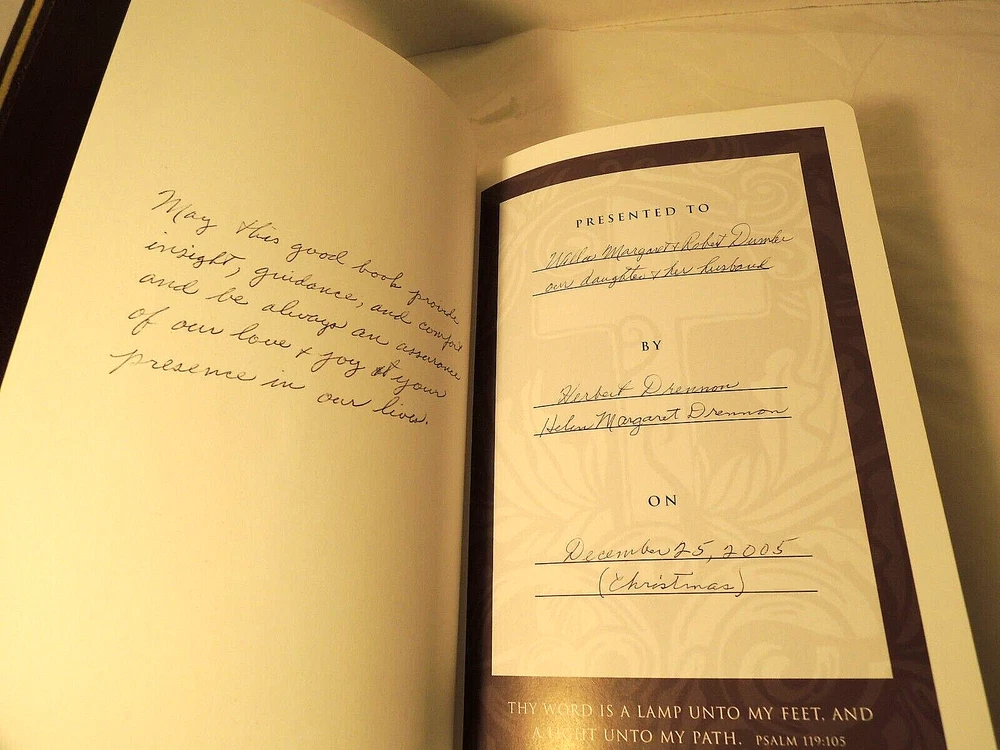 May this good book provide
insight, guidance, and comfort
and be always an assurance
of our love + joy at your
presence in our lives.
PRESENTED TO
Margaret & Robert
our daughter & her husband
BY
Herbert Drennon
Helen Margaret Drennon
ON
December 25, 2005
(Christmas)
THY WORD IS A LAMP UNTO MY FEET, AND
A LIGHT UNTO MY PATH. PSALM 119:105